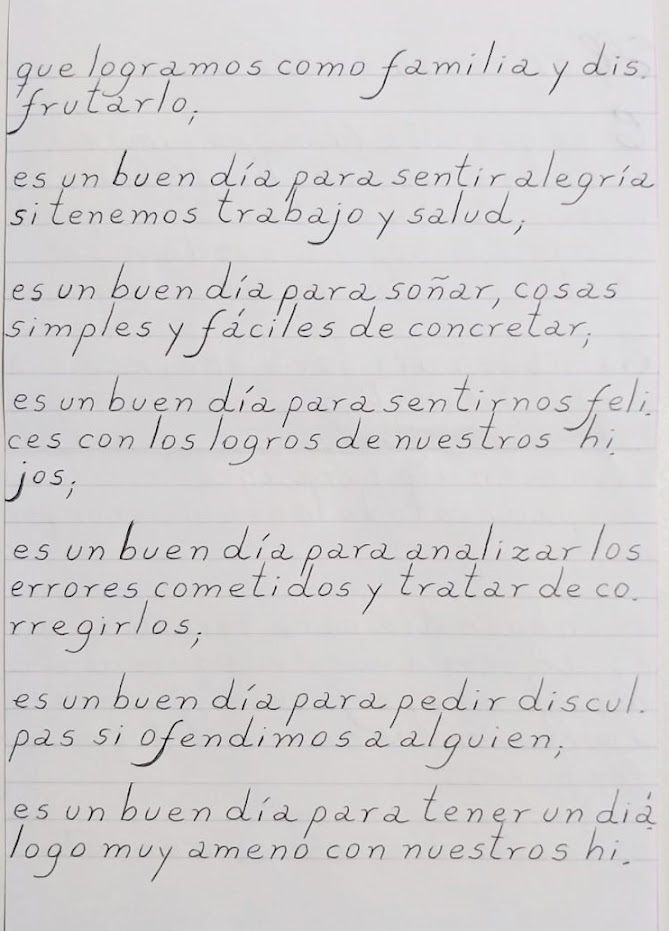 que logramos como familia y dis.
frutarlo;
es un buen día para sentir alegría
si tenemos trabajo y salud;
es un buen día para soñar, cosas
simples y fáciles de concretar;
es un buen día para sentirnos feli.
ces con los logros de nuestros hi.
jos;
es un buen día para analizar los
errores cometidos y tratar de co.
rregirlos;
es un buen día para pedir discul.
pas si ofendimos a alguien;
es un buen día para tener un diá
logo muy ameno con nuestros hi.